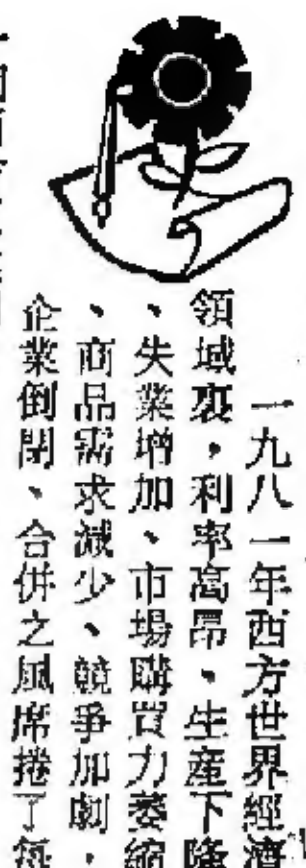 一九八一年西方世界經濟
領域裏，利率高昂、生產下降
、失業增加、市場購買力萎縮
、商品需求減少、競爭加劇，
企業倒閉、合併之風席捲了每